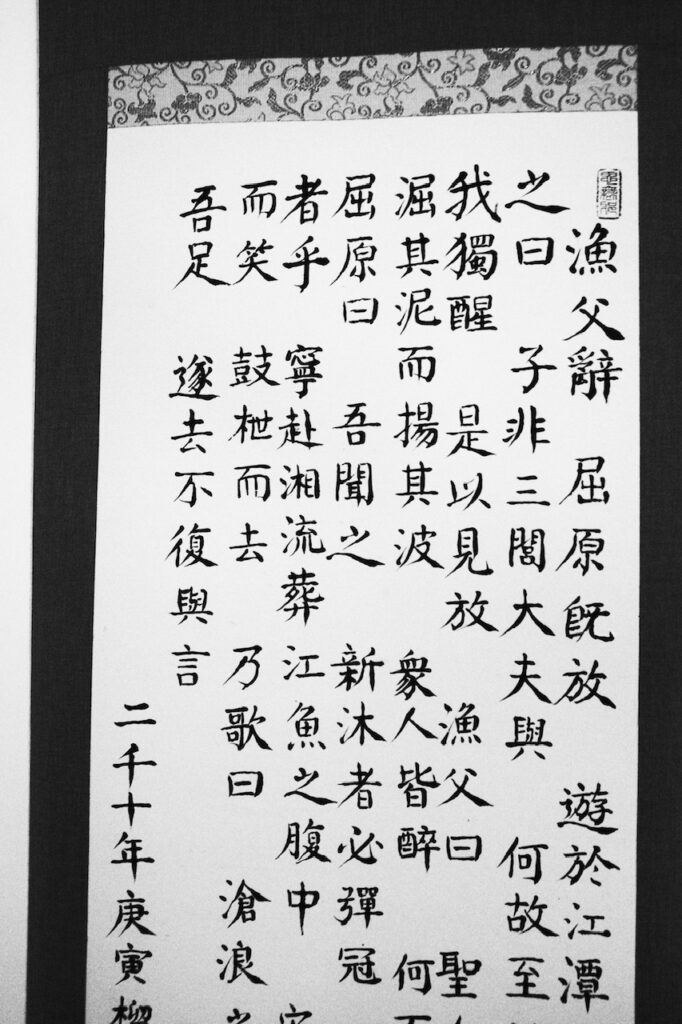 漁父辭 屈原旣放 遊於江潭
之曰 子非三閭大夫與 何故至
我獨醒 是以見放 漁父曰 聖
淈其泥而揚其波 衆人皆醉 何
屈原曰 吾聞之 新沐者必彈冠
者乎 寧赴湘流葬江魚之腹中
而笑 鼓枻而去 乃歌曰 滄浪之
吾足 遂去不復與言
二千十年庚寅榴